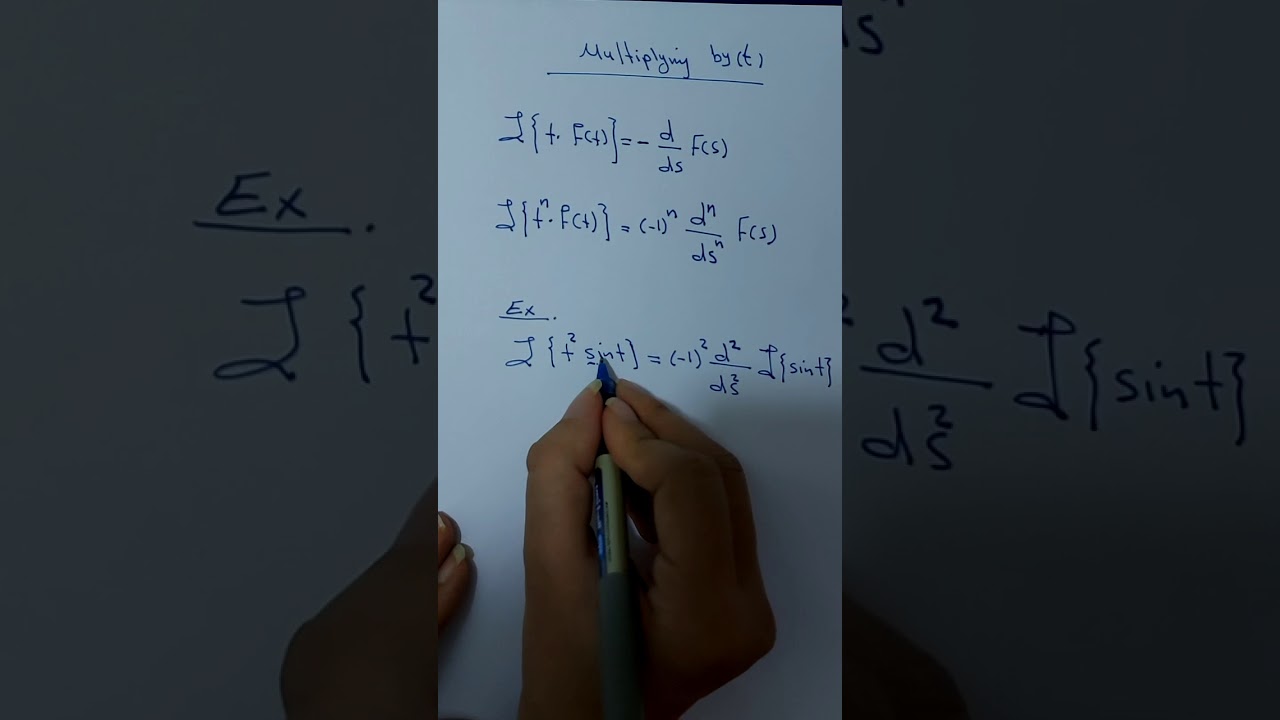 Multiplying by(t)
ℒ{t. f(t)} = - d/ds F(s)
ℒ{tⁿ. f(t)} = (-1)ⁿ dⁿ/dsⁿ F(s)
Ex.
ℒ{t² sint} = (-1)² d²/ds² ℒ{sint}